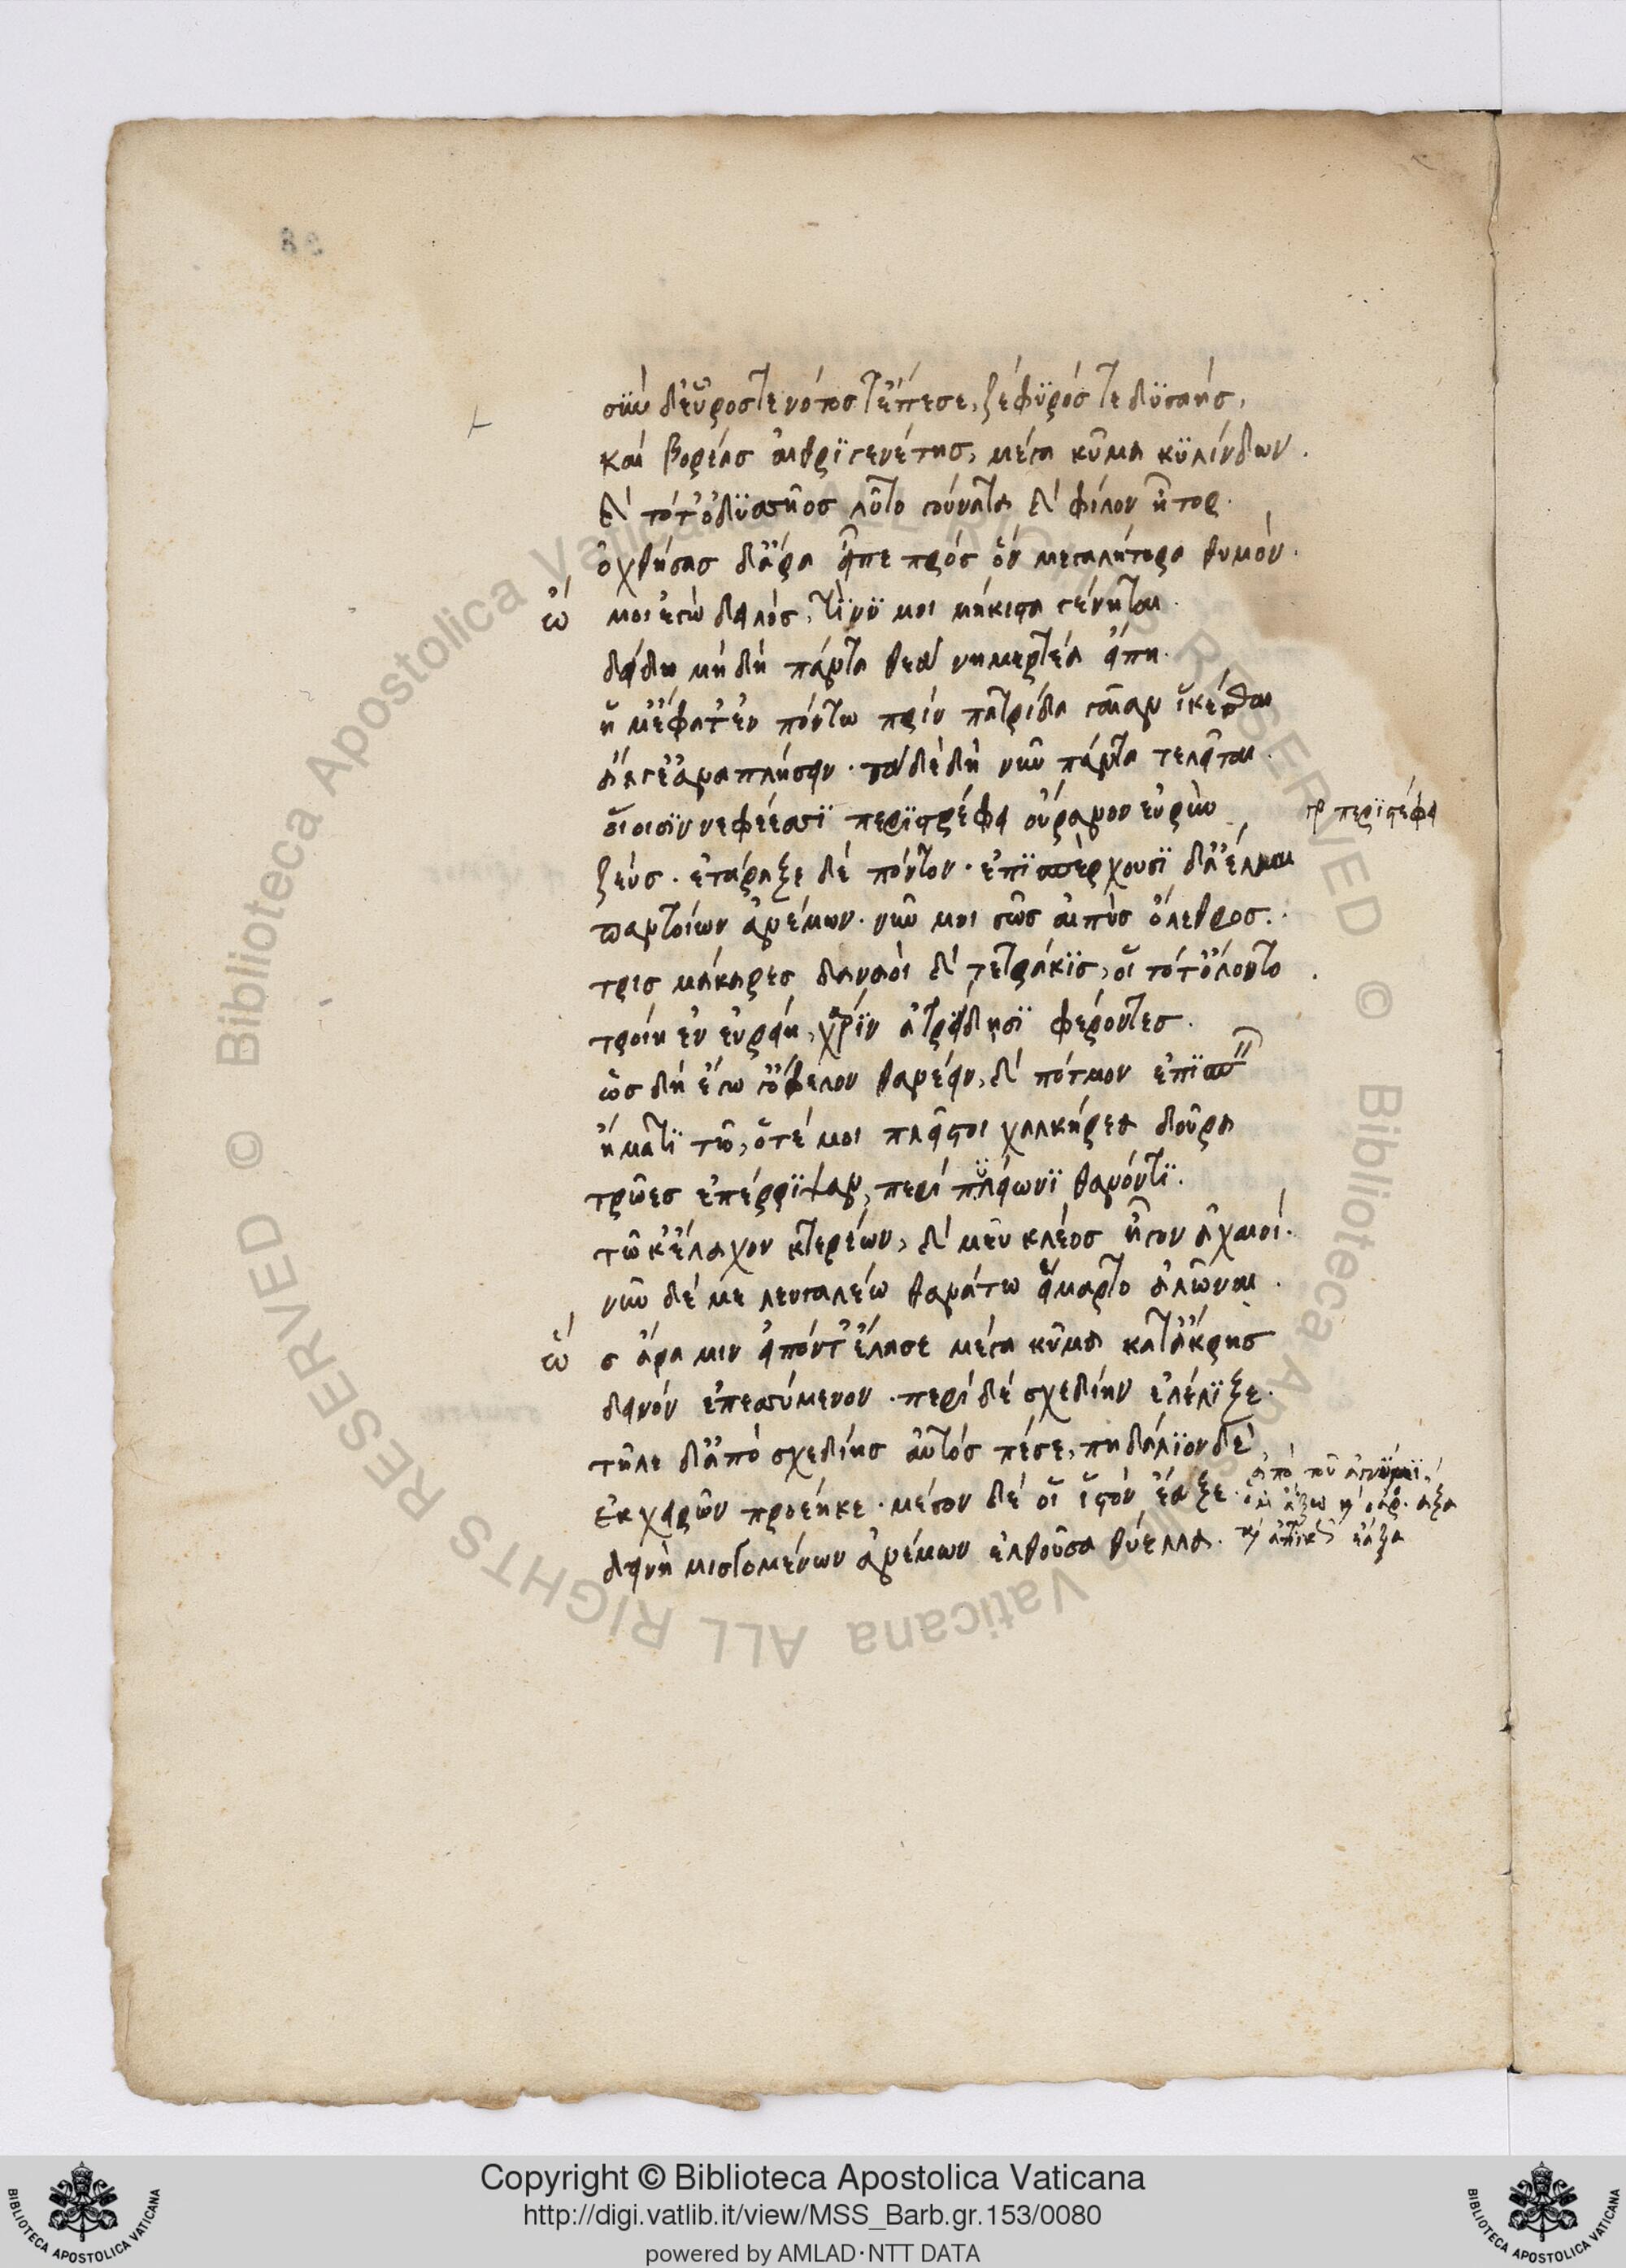 σὺν δ' εὖρος τε νότος τ' ἔπεσε, ζέφϋρός τε δϋσαής,
καὶ βορέας αἰθρϊγενέτης, μέγα κῦμα κϋλίνδων.
καὶ τότ' ὀδϋσσῆος λῦτο γούνατα καὶ φίλον ἦτορ.
ὀχθήσας δ' ἄρα εἶπε πρὸς ὃν μεγαλήτορα θυμόν.
ὤ μοι ἐγὼ δειλός, τί νϋ μοι μήκιστα γένηται.
δείδω μὴ δὴ πάντα θεὰ νημερτέα εἴπη.
ἥ μ' ἔφατ' ἐν πόντω πρὶν πατρίδα γαῖαν ἱκέσθαι
ἄλγε' ἀναπλήσειν. τὰ δὲ δὴ νῦν πάντα τελεῖται.
οἵοισϊν νεφέεσσϊ περϊστρέφει οὐρανον εὐρὺν
γρ περϊστέφει
ζεύς. ἐτάραξε δὲ πόντον. ἐπϊσπέρχουσϊ δ' ἄελλαι
παντοίων ἀνέμων. νῦν μοι σῶς αἰπὺς ὄλεθρος.
τρις μάκαρες δαναοὶ καὶ τετράκϊς, οἳ τότ' ὄλοντο
τροίη ἐν εὐρείη, χάρϊν ἀτρείδησϊ φέροντες.
ὡς δὴ ἔγω γ' ὄφελον θανέειν, καὶ πότμον ἐπϊσπ
ἤματϊ τῶ, ὅτέ μοι πλεῖστοι χαλκήρεα δοῦρα
τρῶες ἐπέρρϊψαν, περὶ πηλείωνϊ θανόντϊ.
τῶ κ' ἔλαχον κτερέων, καὶ μεῦ κλέος ἦγον ἀχαιοί.
νῦν δέ με λευγαλέω θανάτω εἵμαρτο ἁλῶναι.
ὣς ἄρα μιν εἰπόντ' ἔλασε μέγα κῦμα κατ' ἄκρης
δεινὸν ἐπεσσύμενον. περὶ δὲ σχεδίην ἐλέλϊξε.
τῆλε δ' ἀπὸ σχεδίης αὐτὸς πέσε, πηδάλϊον δὲ
ἐκ χειρῶν προέηκε. μέσον δέ οἱ ἱστὸν ἔαξε.
δεινὴ μισγομένων ἀνέμων ἐλθοῦσα θύελλα.
ἀπὸ τοῦ
ἄξω
ἀξα
ἔαξα
Copyright © Biblioteca Apostolica Vaticana
http://digi.vatlib.it/view/MSS_Barb.gr.153/0080
powered by AMLAD·NTT DATA